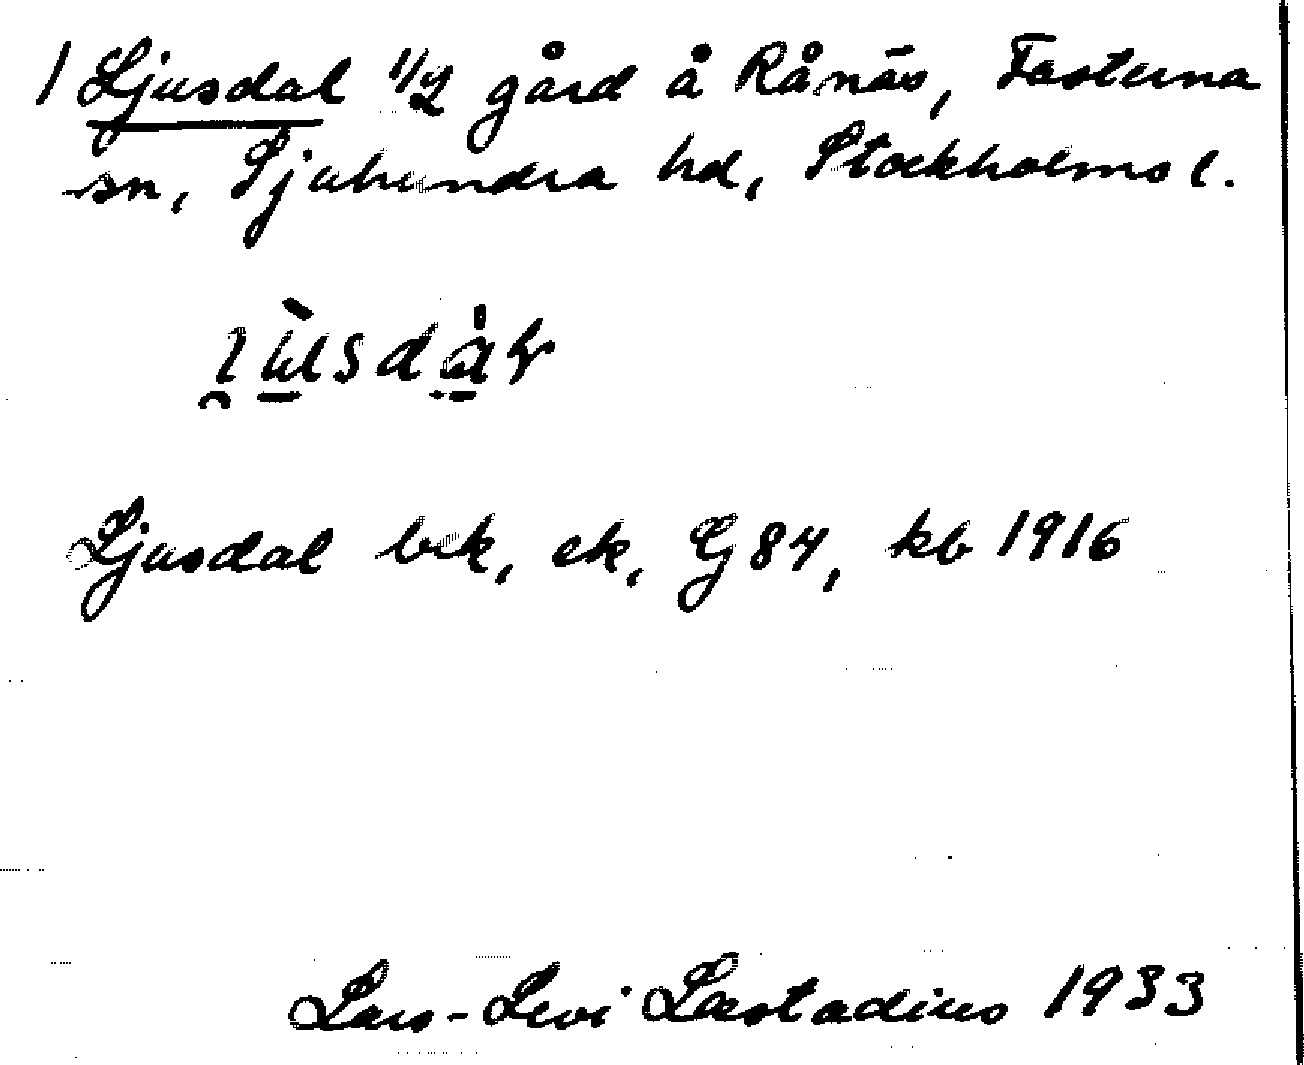 1 Ljusdal 1/2 gård å Rånäs, Fasterna
sn, Sjuhundra hd, Stockholms l.
Ljusdal bek, ek, Gj 84, kb 1916
Lars-Levi Læstadius 1933